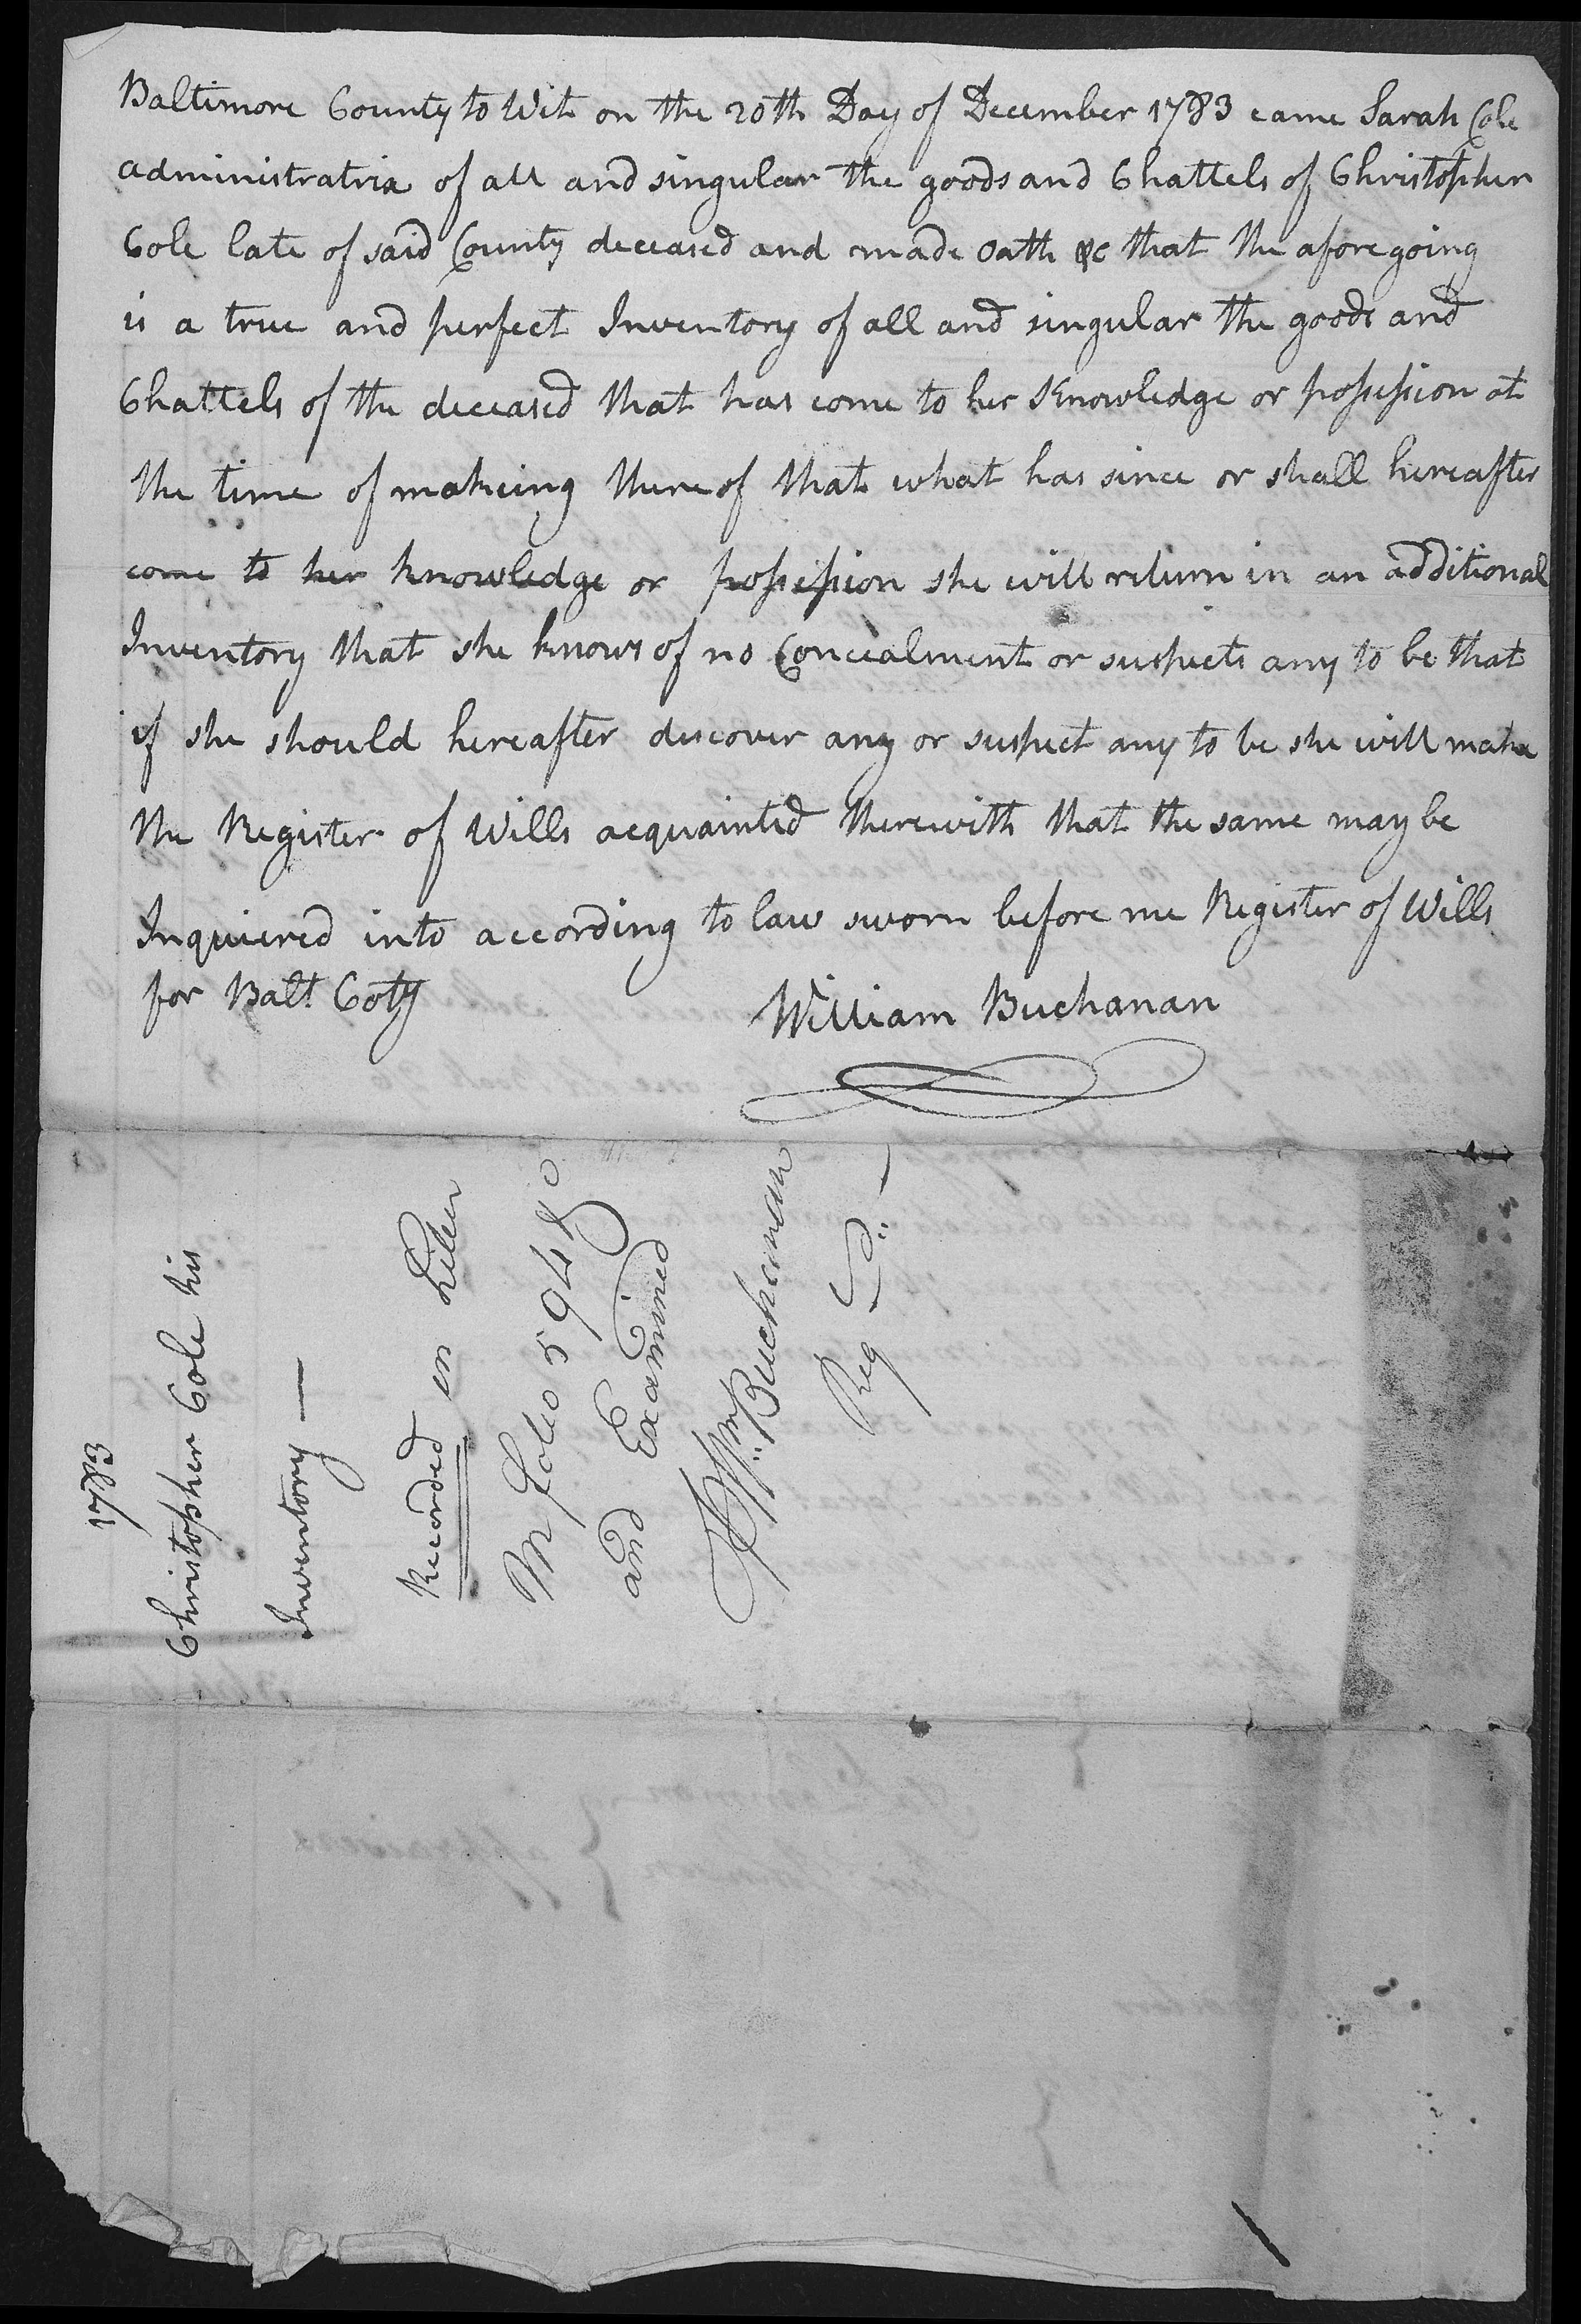 Baltimore County to Wit on the 20th Day of December 1783 came Sarah Cole
administratrix of all and singular the goods and Chattels of Christopher
Cole late of said County deceased and made oath &c that the aforegoing
is a true and perfect Inventory of all and singular the goods and
Chattels of the deceased that has come to her Knowledge or possession at
the time of makeing thereof that what has since or shall hereafter
come to her knowledge or possession she will return in an additional
Inventory that she knows of no Concealment or suspects any to be that
if she should hereafter discover any or suspect any to be she will make
the Register of Wills acquainted therewith that the same may be
Inquiered into according to law sworn before me Register of Wills
for Balt Coty
William Buchanan
1783
Christopher Cole his
Inventory —
Recorded in Liber
M folio 594 &c
and Examined
Wm Buchanan
Reg